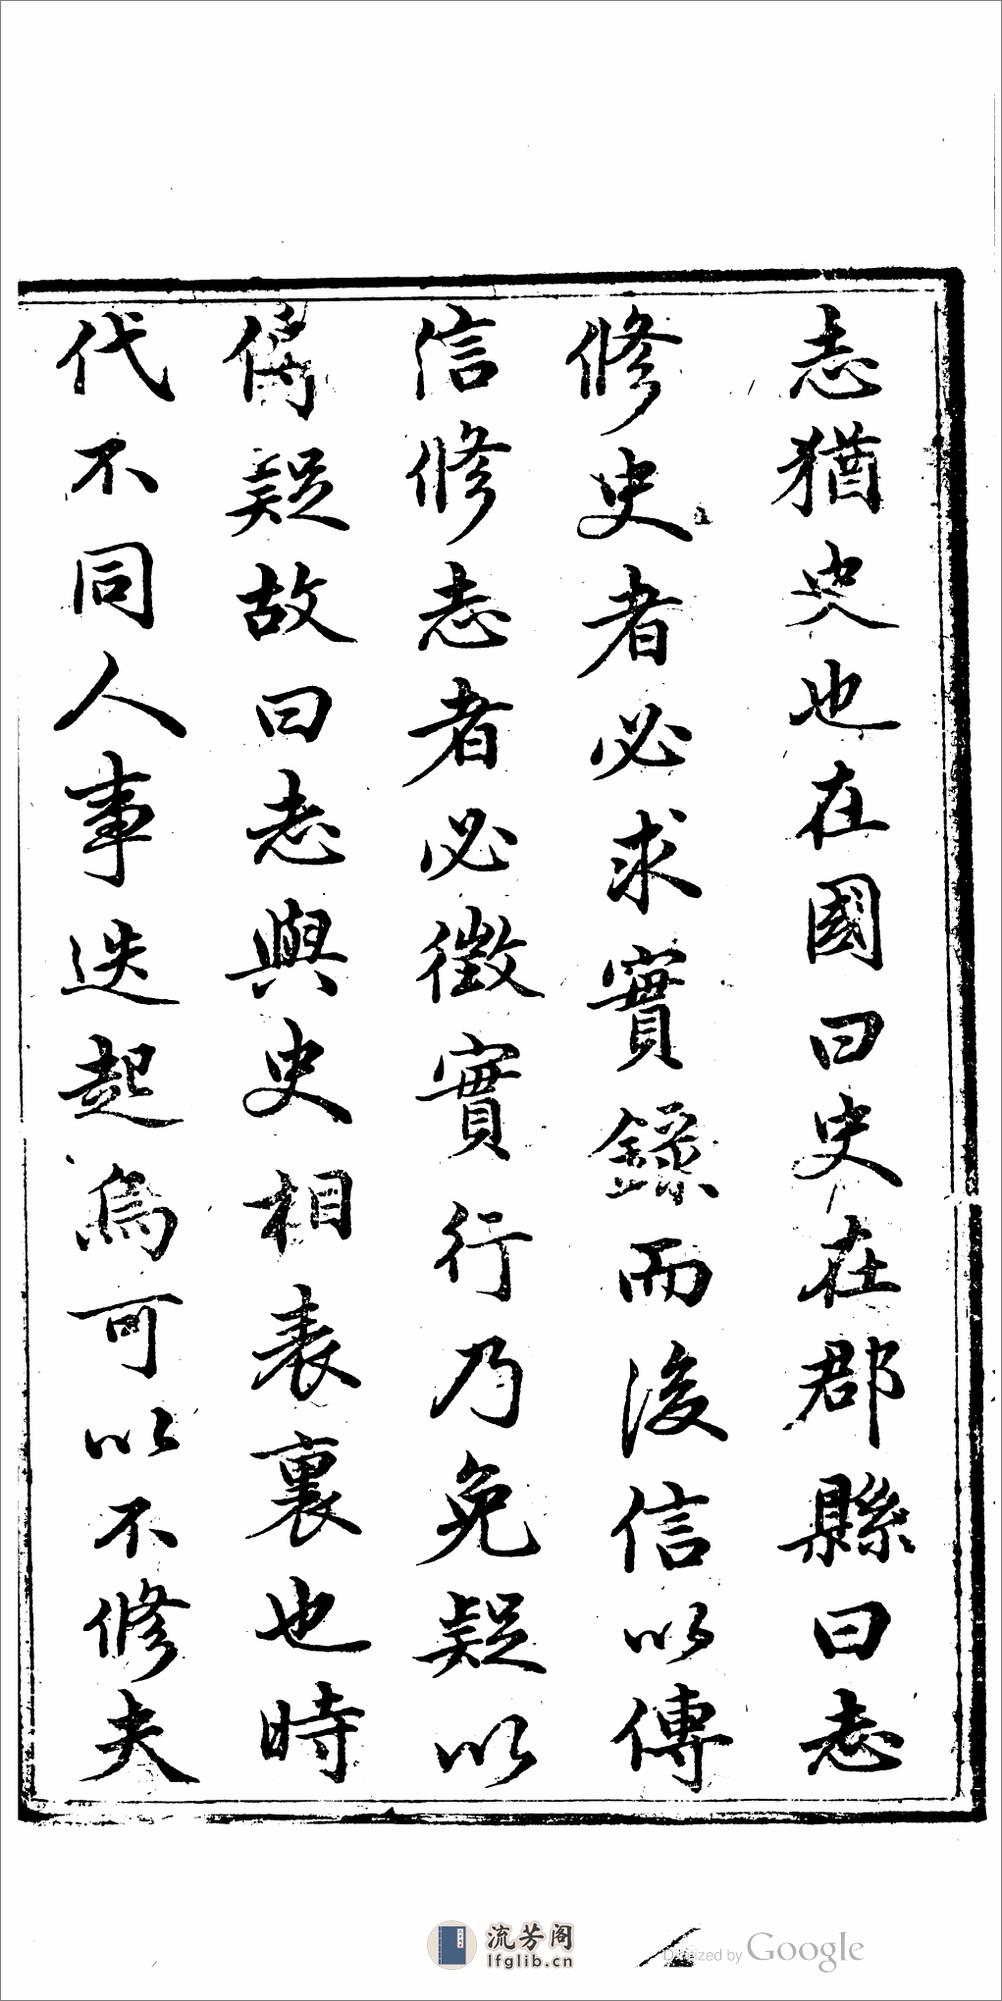 志猶史也在國曰史在郡縣曰志
修史者必求實錄而後信以傳
信修志者必徵實行乃免疑以
傳疑故曰志與史相表裏也時
代不同人事迭起烏可以不修夫
流芳阁
lfglib.cn
Digitized by Google